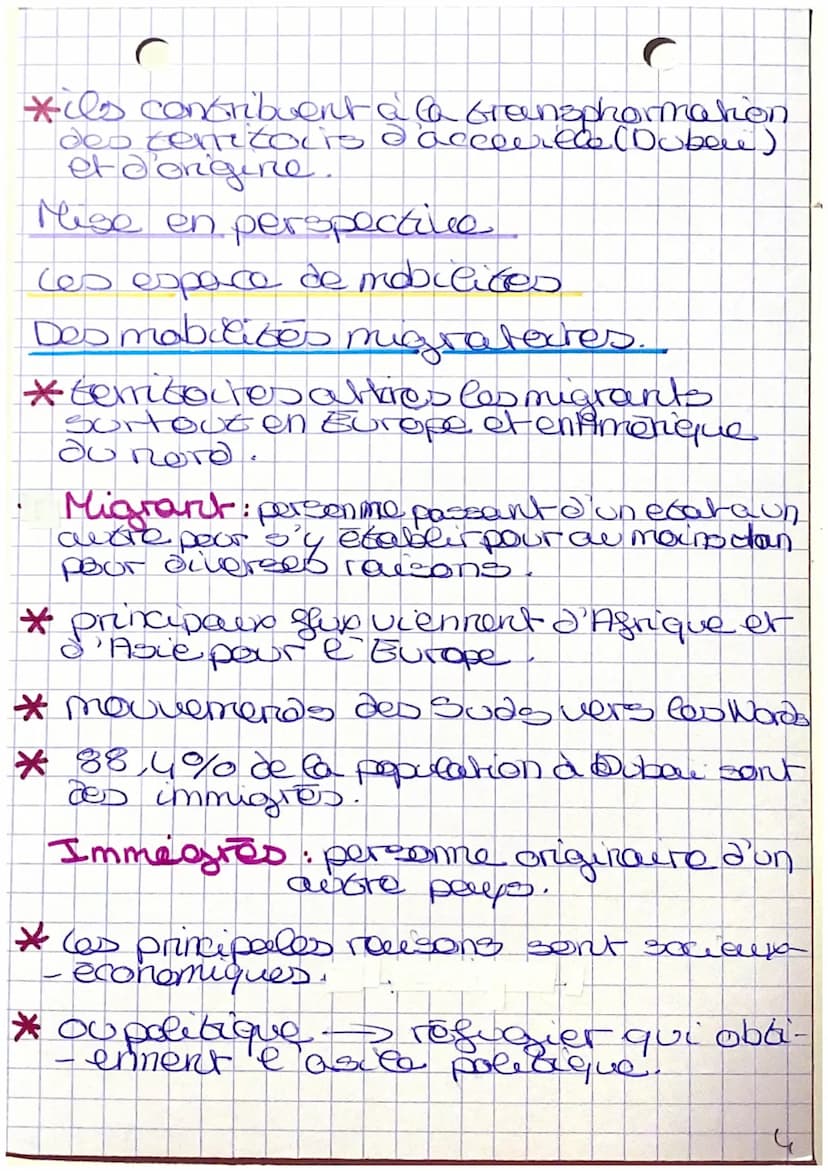 *ils contribuent à la transphormation
des territoirs d'accueille (Dubaï)
et d'origine.
Mise en perspective
Les espace de mobilités
Des mobilités migratoires.
* territoires attires les migrants
surtout en Europe et en Amérique
du nord.
Migrant : personne passant d'un état à un
autre pour s'y établir pour au moins 1an
pour diverses raisons.
* principaux flux viennent d'Afrique et
d'Asie pour l'Europe.
* mouvements des Suds vers les Nords
* 88,4% de la population à Dubai sont
des immigrés.
Immégrés : personne originaire d'un
autre pays.
* Les principales raisons sont sociaux-
-économiques.
* ou politique → réfugier qui obti-
-ennent l'asile politique.
4